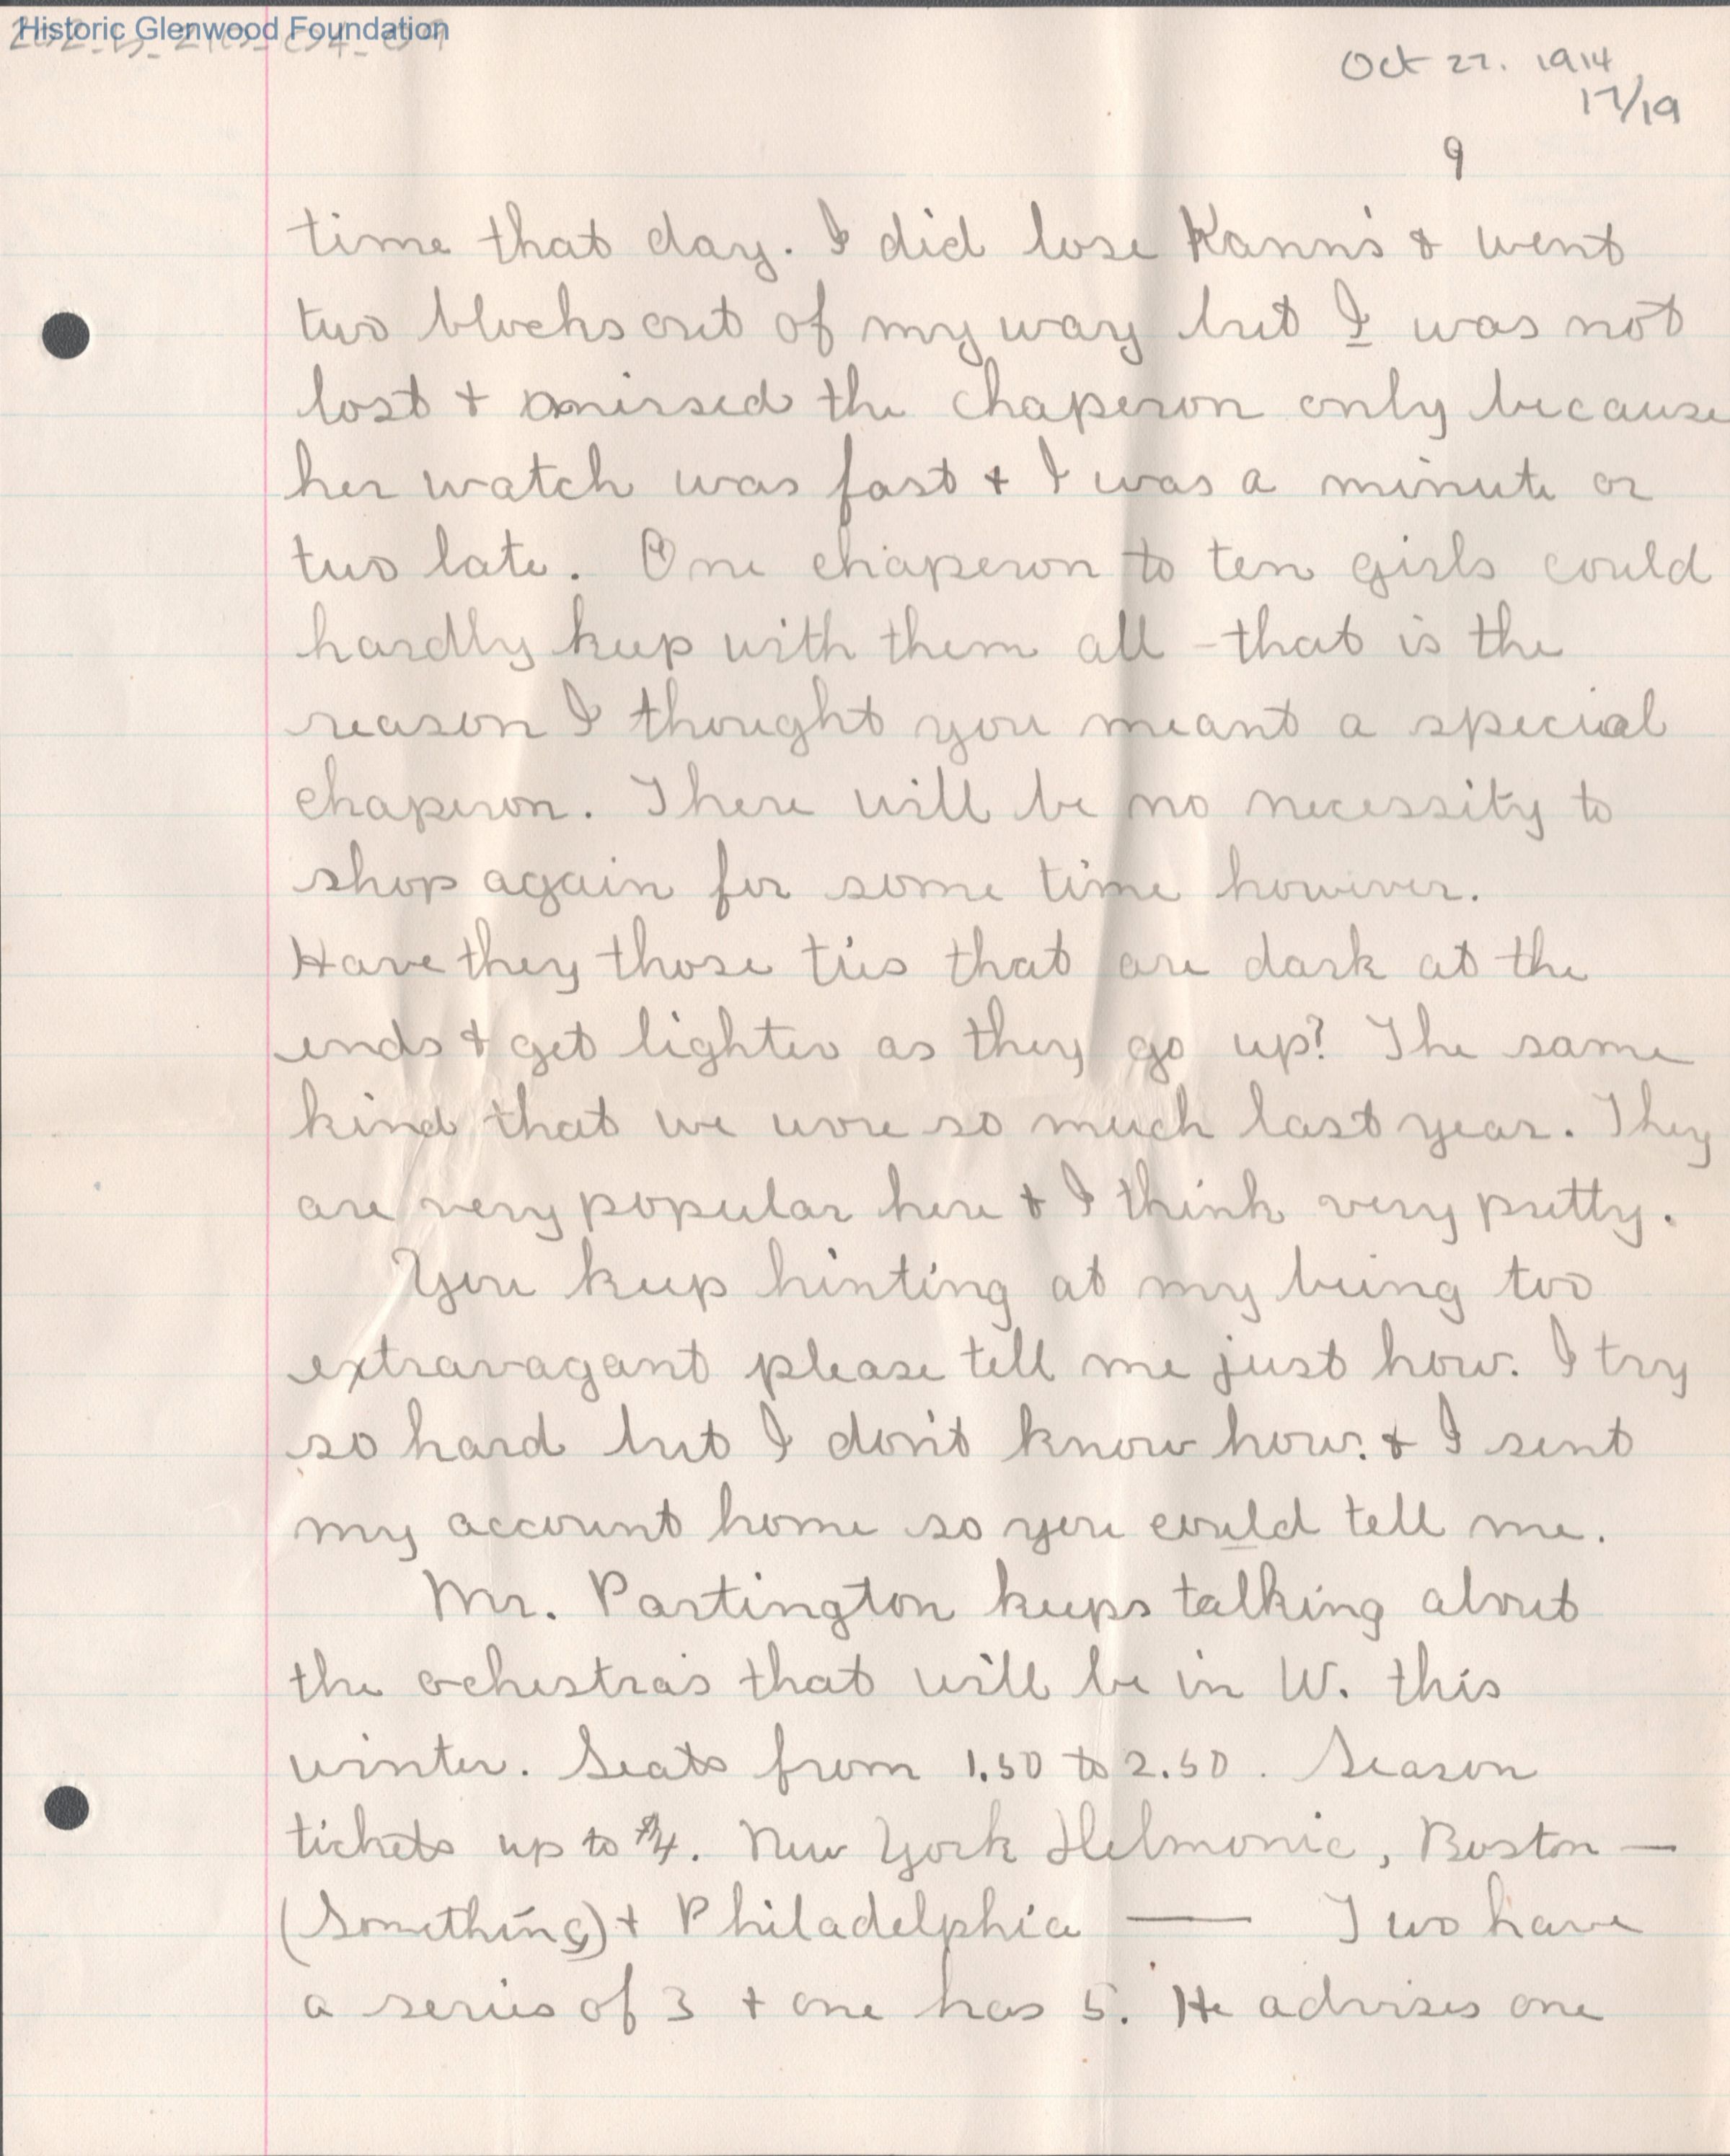 Historic Glenwood Foundation
Oct 27. 1914
17/19
9
time that day. I did lose Kann's & went
two blocks out of my way but I was not
lost + missed the chaperon only because
her watch was fast + I was a minute or
two late. One chaperon to ten girls could
hardly keep with them all - that is the
reason I thought you meant a special
chaperon. There will be no necessity to
shop again for some time however.
Have they those ties that are dark at the
ends & get lighter as they go up? The same
kind that we wore so much last year. They
are very popular here & I think very pretty.
You keep hinting at my being too
extravagant please tell me just how. I try
so hard but I don't know how. & I sent
my account home so you could tell me.
Mr. Partington keeps talking about
the orchestras that will be in W. this
winter. Seats from 1.50 to 2.50. Season
tickets up to $4. New York Helmonic, Boston —
(Something) + Philadelphia — Two have
a series of 3 + one has 5. He advises one